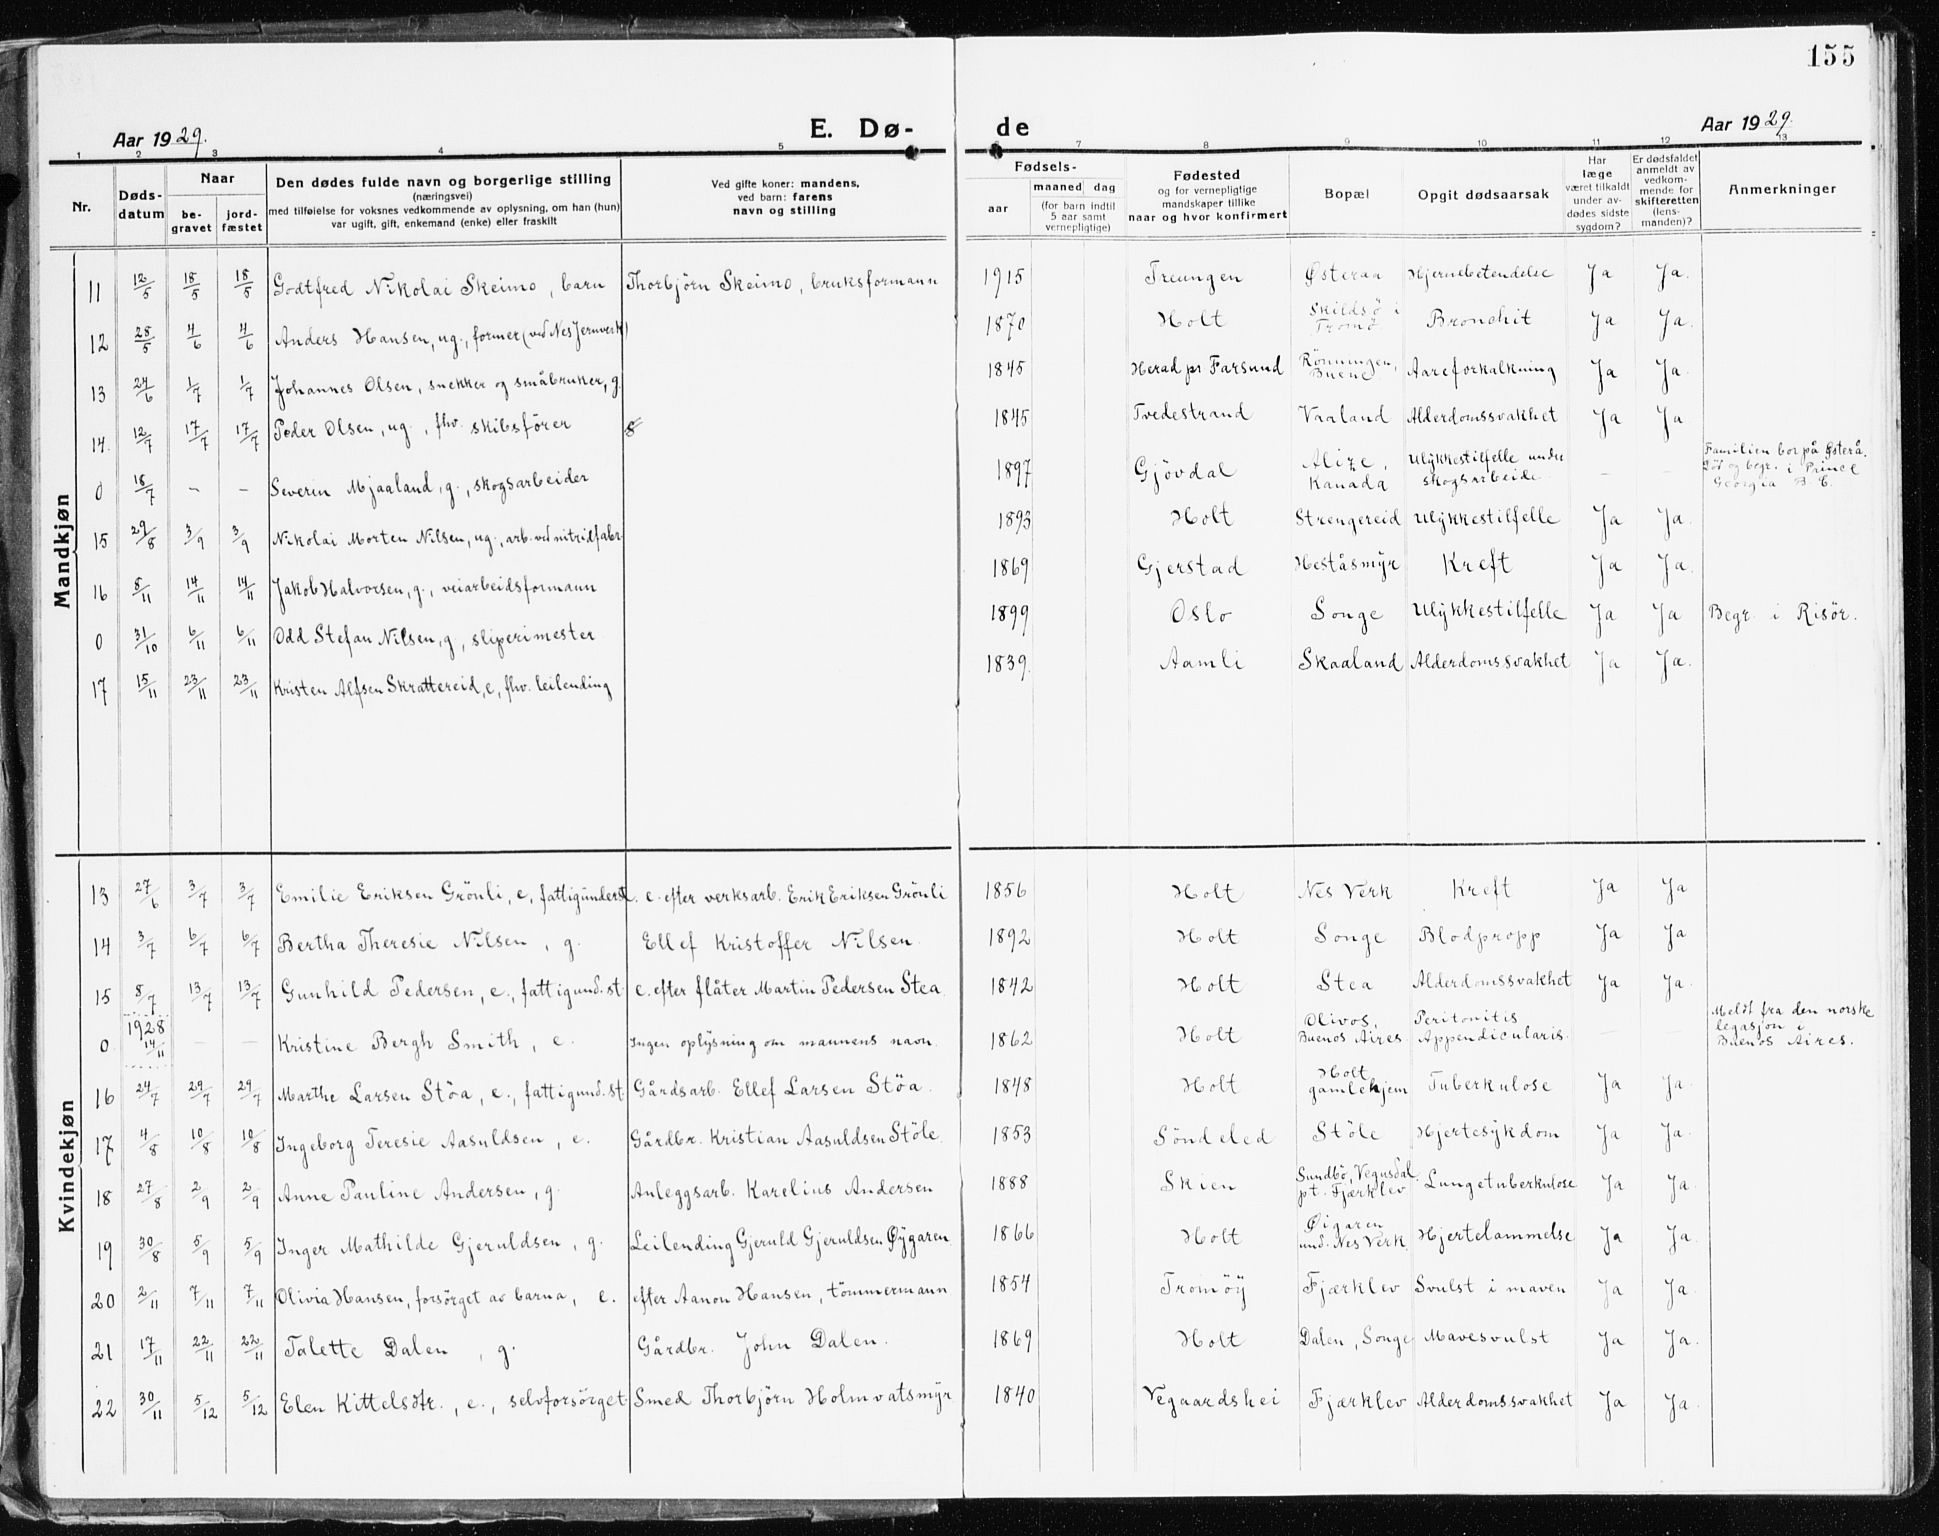 155
Aar 1929. E. Dø- de Aar 1929.
1 2 3 4 5 7 8 9 10 11 12 13
Nr. Døds-datum Naar be-gravet jord-fæstet Den dødes fulde navn og borgerlige stilling (næringsvei) med tilføielse for voksnes vedkommende av oplysning, om han (hun) var ugift, gift, enkemand (enke) eller fraskilt Ved gifte koner: mandens, ved barn: farens navn og stilling Fødsels- aar maaned dag (for barn indtil 5 aar samt vernepligtige) Fødested og for vernepligtige mandskaper tillike naar og hvor konfirmert Bopæl Opgit dødsaarsak Har læge været tilkaldt under av-dødes sidste sygdom? Er dødsfaldet anmeldt av vedkom-mende for skifteretten (lens-manden)? Anmerkninger
Mandkjøn
11 12/5 18/5 18/5 Godtfred Nikolai Skeimo, barn Thorbjörn Skeimo, bruksformann 1915 Treungen Østeraa Hjernebetendelse Ja Ja.
12 28/5 4/6 4/6 Anders Hansen, ug., former (ved Nes Jernverk) 1870 Holt Skildsö i Tromø Bronchit Ja Ja.
13 24/6 1/7 1/7 Johannes Olsen, snekker og småbruker, g. 1845 Herad pr Farsund Rönningen, Buene Aareforkalkning Ja Ja.
14. 12/7 17/7 17/7 Peder Olsen, ug., fhv. skibsfører 1845 Tvedestrand Vaaland Alderdomssvakhet Ja Ja
0 18/7 – – Severin Mjaaland, g., skogsarbeider 1897 Gjövdal Alize, Kanada Ulykkestilfelle under skogsarbeide. – – Familien bor på Østerå. Död og begr. i Prince Georgia B. C.
15 29/8 3/9 3/9 Nikolai Morten Nilsen, ug., arb. ved nitridfabr. 1893 Holt Strengereid Ulykkestilfelle Ja Ja.
16 8/11 14/11 14/11 Jakob Halvorsen, g., veiarbeidsformann 1869 Gjerstad Heståsmyr Kreft Ja Ja.
0 31/10 6/11 6/11 Odd Stefan Nilsen, g., sliperimester 1899 Oslo Songe Ulykkestilfelle Ja Ja Begr. i Risör.
17 15/11 23/11 23/11 Kristen Alfsen Skrattereid, e., fhv. leilending 1839. Aamli Skaaland Alderdomssvakhet Ja Ja.
Kvindekjøn
13 27/6 3/7 3/7 Emilie Eriksen Grönli, e., fattigunderst. e. efter verksarb. Erik Eriksen Grönli 1856 Holt Nes Verk Kreft Ja Ja
14 3/7 6/7 6/7 Bertha Theresie Nilsen, g. Ellef Kristoffer Nilsen. 1892 Holt Songe Blodpropp Ja Ja
15 8/7 13/7 13/7 Gunhild Pedersen, e., fattigund.st. e. efter flåter Martin Pedersen Stea 1842 Holt Stea Alderdomssvakhet Ja Ja
0 1928 14/11 – – Kristine Bergh Smith, e. Ingen oplysning om mannens navn. 1862 Holt Olivos, Buenos Aires Peritonitis Appendicularis. – – Meldt fra den norske legasjon i Buenos Aires.
16 24/7 29/7 29/7 Marthe Larsen Stöa, e., fattigund.st. Gårdsarb. Ellef Larsen Stöa. 1848 Holt Holt gamlehjem Tuberkulose Ja Ja.
17 4/8 10/8 10/8 Ingeborg Teresie Aasuldsen, e. Gårdbr. Kristian Aasuldsen Stöle. 1853 Söndeled Stöle Hjertesykdom Ja Ja.
18 27/8 2/9 2/9 Anne Pauline Andersen, g. Anleggsarb. Karelius Andersen 1888 Skien Sundbö, Vegusdal pt. Fjærklev Lungetuberkulose Ja Ja.
19 30/8 5/9 5/9 Inger Mathilde Gjeruldsen, g. Leilending Gjeruld Gjeruldsen Øygaren 1866 Holt Øigaren und. Nes Verk. Hjertelammelse Ja Ja.
20 2/11 7/11 7/11 Olivia Hansen, forsörget av barna, e. efter Aanon Hansen, tömmermann 1854 Tromöy Fjærklev Svulst i maven Ja Ja.
21 17/11 22/11 22/11 Talette Dalen, g. Gårdbr. John Dalen. 1869 Holt Dalen, Songe Mavesvulst Ja Ja.
22 30/11 5/12 5/12 Elen Kittelsdtr., e., selvforsörget Smed Thorbjörn Holmvatsmyr 1840 Vegaardshei Fjærklev Alderdomssvakhet Ja Ja.